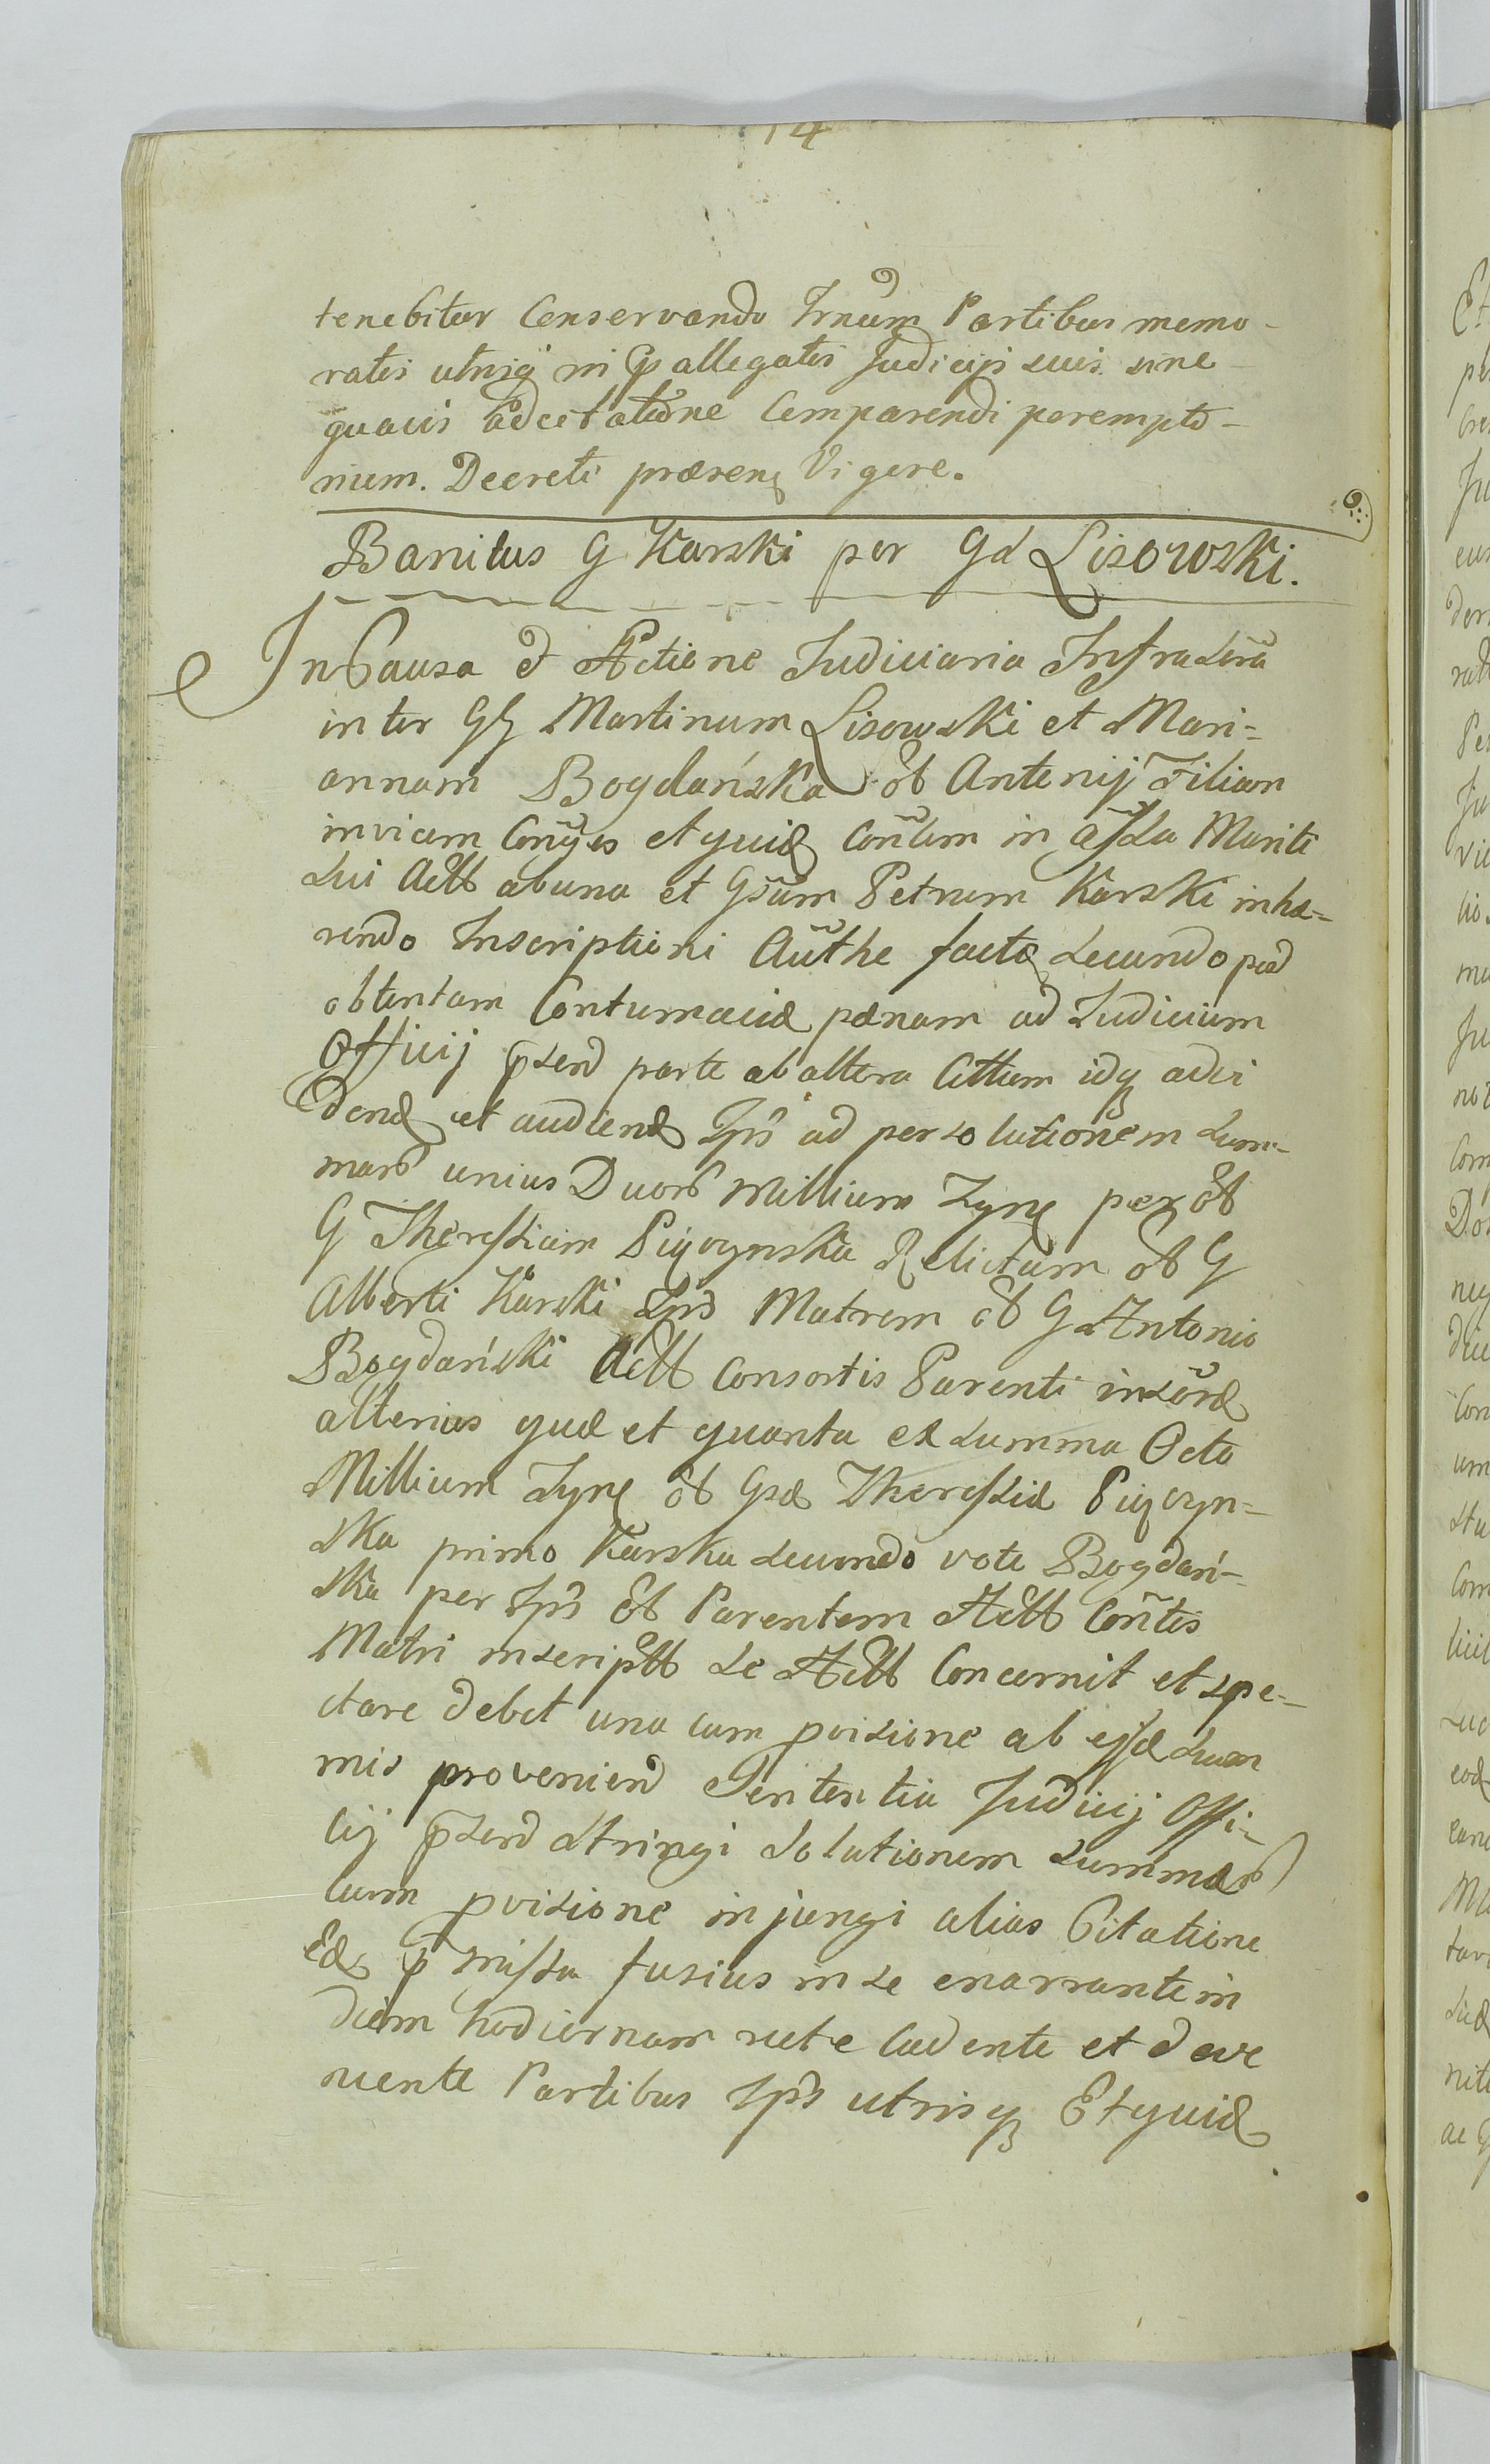 14
tenebitur Conservando Trnum Partibus memo-
ratis utrisq in P allegatis Judicijs suis sine
quavis adcitatione Comparendi perempto-
rium. Decreti præsens Vigore.
Banitus G Karski per Gd Lisowski.
In Causa et Actione Judiciaria Infrascrā
inter GG Martinum Lisowski et Mari=
annam Bogdańska olt Antonij Filiam
invicem Coñges et quid Coñlem in aſsta Mariti
sui Actt ab una et Gsum Petrum Karski inhæ=
rendo Inscriptioni Authe facta secundo post
obtentam Contumaciæ pænam ad Judicium
Officij p̄send parte ab altera Cittum idq adci
dend et audiend Ips ad persolutionem sum-
mar unius Duor Millium Zyng per olt
G Theresſiam Pigozynska Relictam olt G
Alberti Karski Ips Matrem olt G Antonio
Bogdański Actt Consortis Parenti inscr̄
alterius quæ et quanta ex summa Octo
Millium Zyng olt Gsd Theresſia Pigozyn=
ska primo Karska secundo voto Bogdań-
ska per Ips olt Parentem Actt Coñtis
Matri inscriptt se Actt Concernit et spe-
ctare debet una cum pvisione ab ejsd sum
mis proveniend Sententia Judicij Offi-
cij p̄send stringi solutionem summar
cum pvisione injungi alias Citatione
Ed p̄ missa fusius in se enarrante in
diem hodiernam recte Cadente et deve
niente Partibus Ips utrisq Et quid